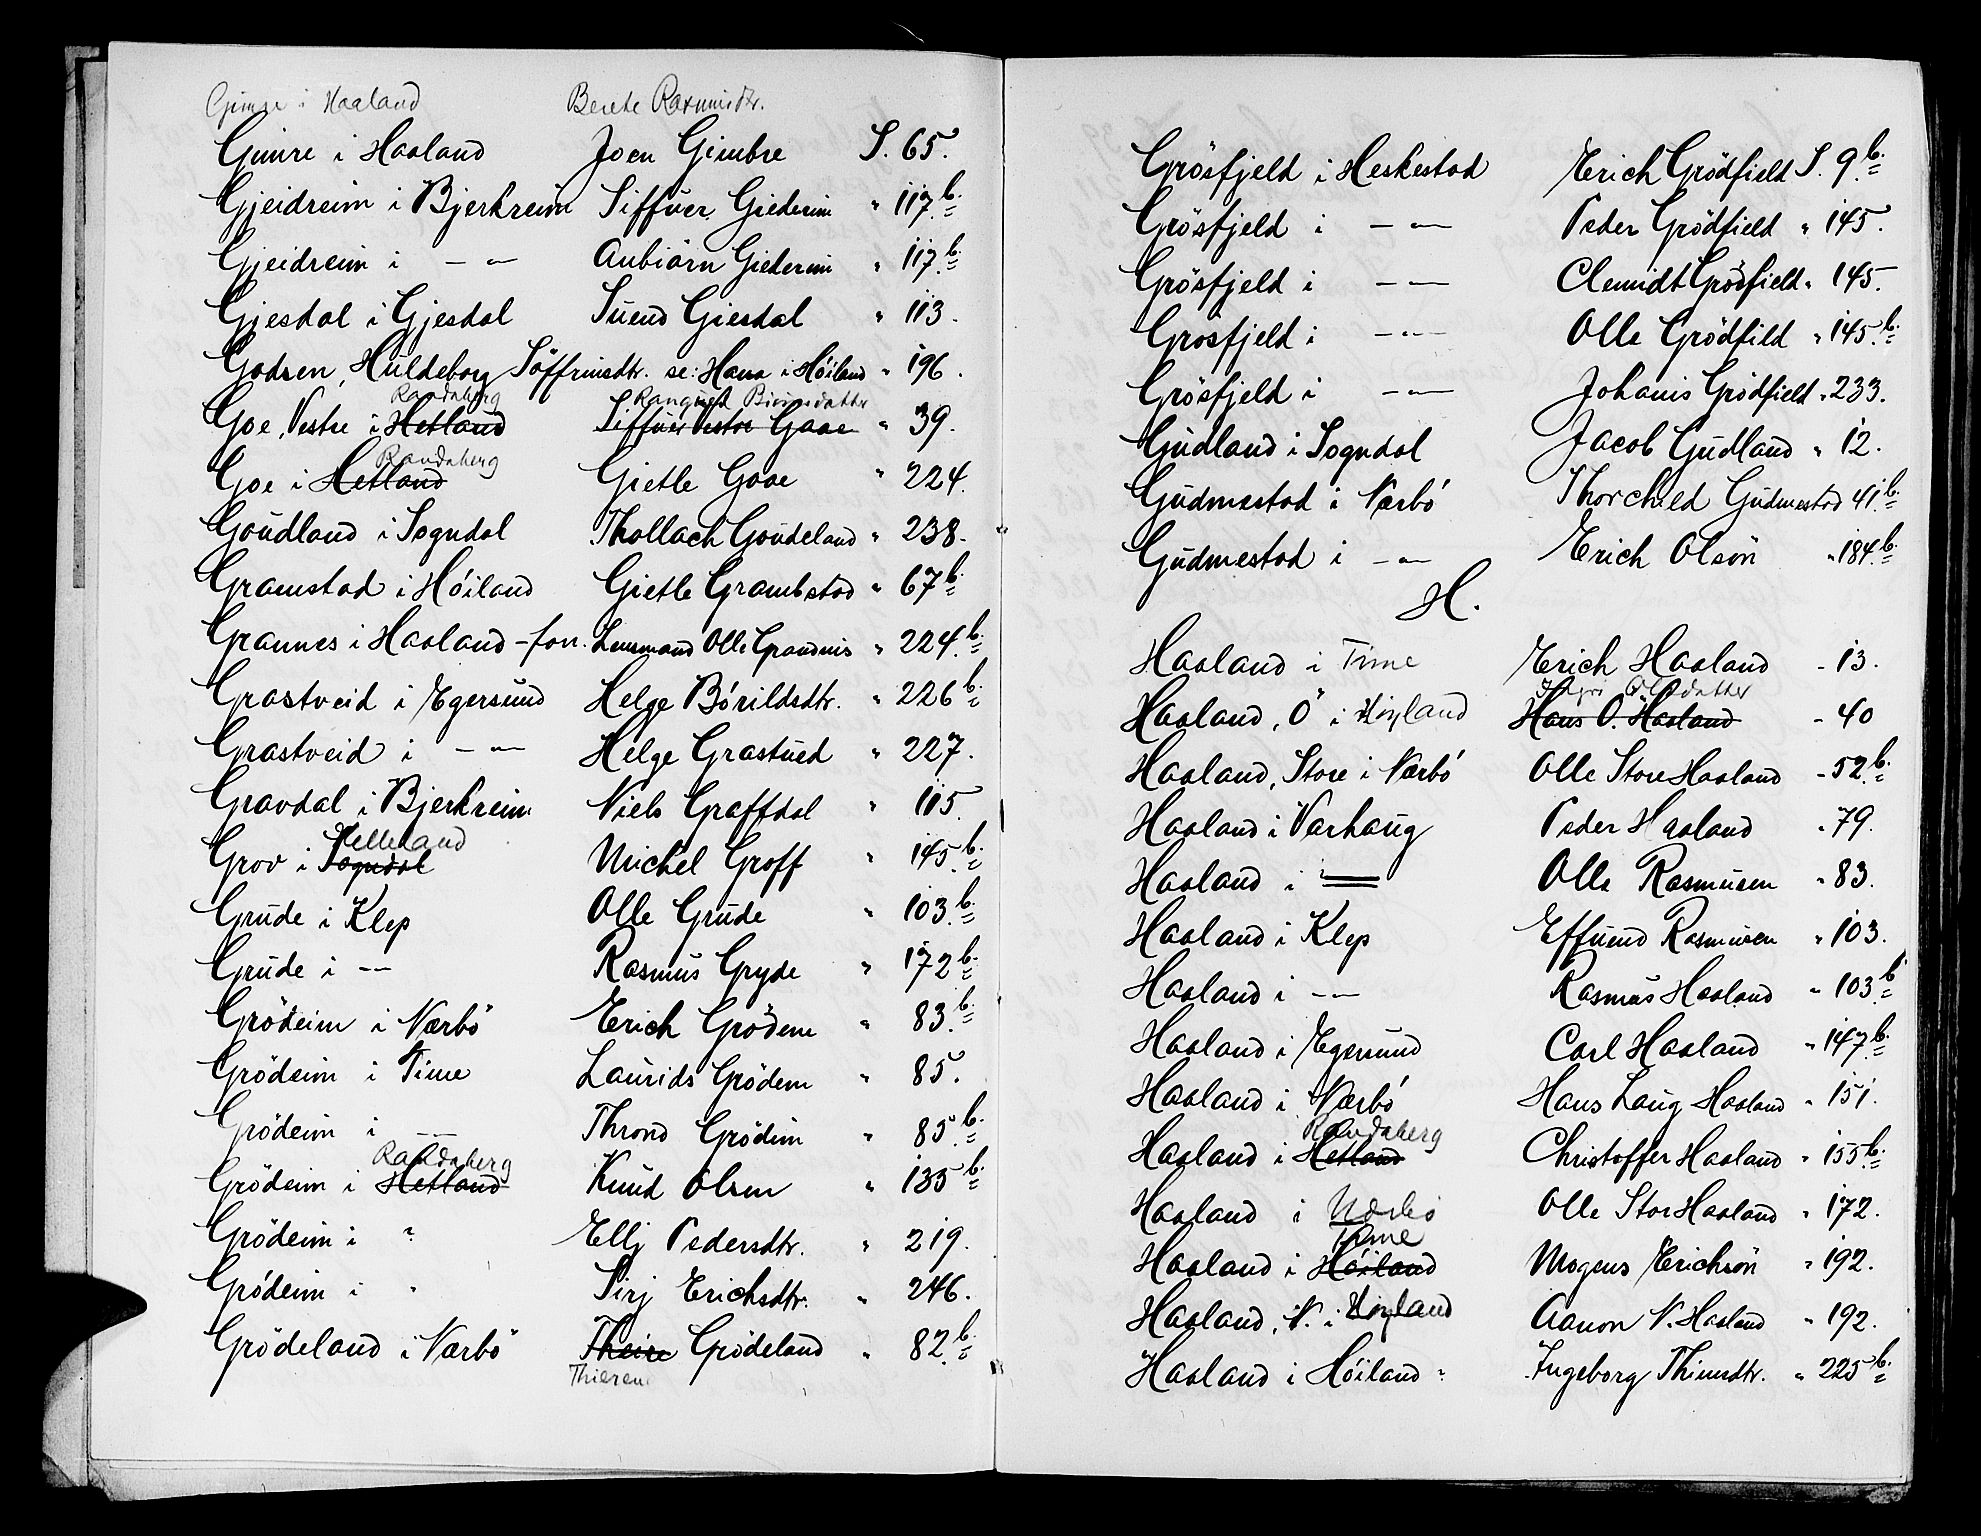 Gimre i Haaland Berete Rasmusdtr.
Gimre i Haaland Joen Gimbre S. 65.
Gjeidreim i Bjerkreim Siffuer Giederim " 117.b.
Gjeidreim i - " - Anbiörn Giederim " 117.b.
Gjesdal i Gjesdal Suend Giesdal " 113.
Godsen, Huldeborg Söffrinsdtr. se: Hana i Höiland " 196.
Randaberg Ranquel
Goe, Vestre i Hetland Siffuer Vestre Gaae " 39.
Randaberg
Goe i Hetland Gietle Gaae " 224.
Goudland i Sogndal Thollach Goudeland " 238.
Gramstad i Höiland Gietle Grambstad " 67b.
Grannes i Haaland - forr. Lensmand Olle Grandnis " 224.b.
Grastveid i Egersund Helge Börildsdtr. " 226b.
Grastveid i - " - Helge Grastued " 227.
Gravdal i Bjerkreim Niels Graffdal " 115.
Helleland
Grov i Sogndal Michel Groff " 145.b.
Grude i Klep Olle Grude " 103.b.
Grude i - " - Rasmus Gryde " 172b.
Grödeim i Nærbö Erich Grödem " 83.b.
Grödeim i Time Laurids Grödem " 85.
Grödeim i - " - Thrond Grödim " 85.b.
Randaberg
Grödeim i Hetland Knud Olsen " 135b.
Grödeim i " Ellj Pedersdtr. " 219.
Grödeim i " Sirj Erichsdtr. " 246.
Grödeland i Nærbö Theire Grödeland " 82.b.
Thieren
Grösfjeld i Heskestad Erich Grödfield S. 9.b.
Grösfjeld i - " - Peder Grödfield " 145.
Grösfjeld i - " - Clemidt Grödfield " 145.
Grosfjeld i - " - Olle Grödfild " 145.b.
Grösfjeld i - " - Johanis Grödfield " 233.
Gudland i Sogndal Jacob Gudland " 12.
Gudmestad i Nærbö Thorchild Gudmestad 41.b.
Gudmestad i - " - Erich Olsön " 184.b.
H.
Haaland i Time Erich Haaland - 13.
datter
Haaland, Ö i Höyland Hans O. Haaland - 40
Haaland, Store i Nærbö Olle Store Haaland - 52.b.
Haaland i Varhaug Peder Haaland " 79.
Haaland i " Olle Rasmusen " 83.
Haaland i Klep Effuend Rasmusen " 103.
Haaland i - " - Rasmus Haaland " 103.b
Haaland i Egersund Carl Haaland " 147.b.
Haaland i Nærbö Hans Laug Haaland " 151.
Randaberg
Haaland i Hetland Christoffer Haaland " 155.b.
Haaland i Nærbö Olle Stor Haaland " 172.
Time
Haaland i Höiland Mogens Erichsön " 192.
Haaland, N. i Höyland Aanon N. Haaland " 192.
Haaland i Höiland " Ingeborg Thimsdtr. " 225b.